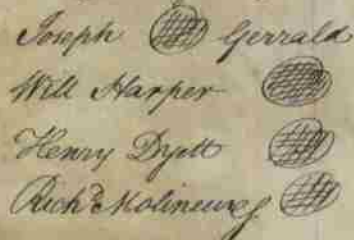 Joseph Gerrald
Will Harper
Henry Dyett
Richd Molineux